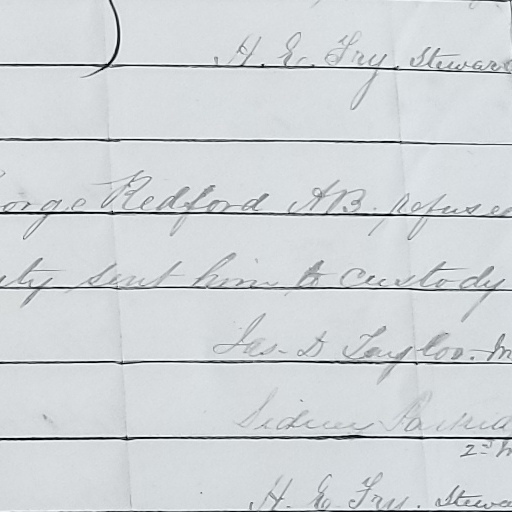 H. E. Fry. Steward
orge Redford AB. refused
ty sent him to custody
Jas. D Taylor. M
Sidney
2nd M
H. E. Fry. Stewa